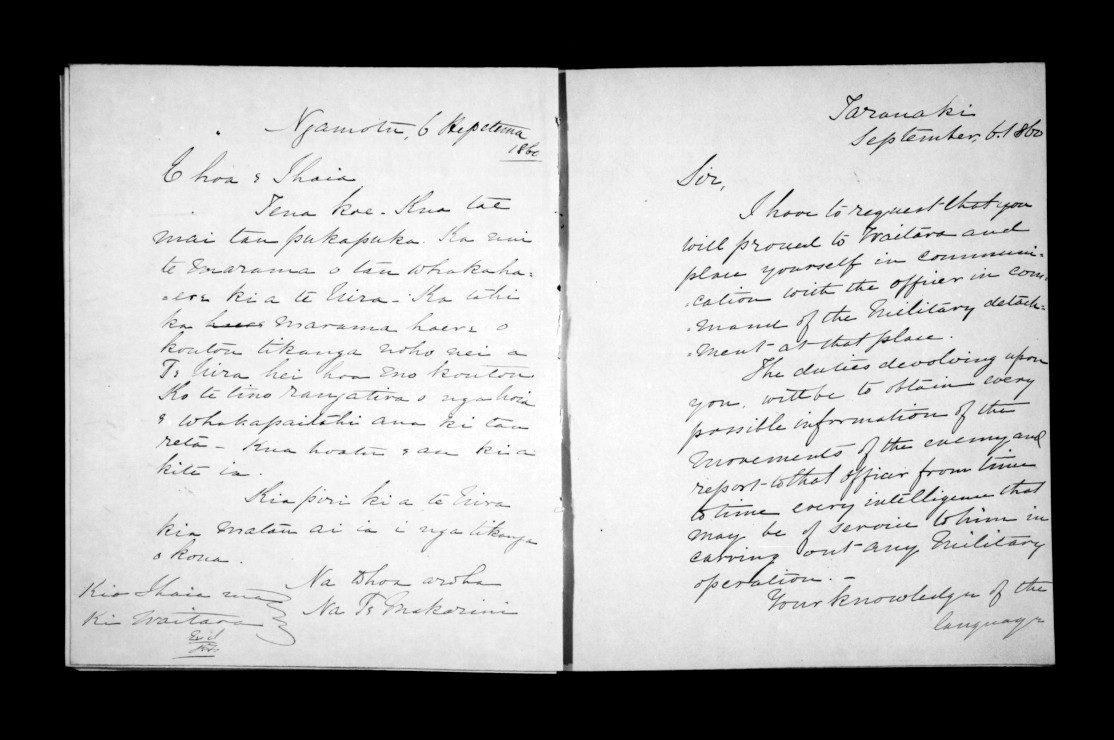 Ngamotu, 6 Hepetema
1860
E hoa e Ihaia
Tena koe. Kua tae
mai tau pukapuka. Ka nui
te marama o tau whakaha=
=ere ki a te Nira - Ka tahi
ka marama haere o
koutou tikanga noho nei a
Te Nira hei hoa mo koutou
Ko te tino rangatira o nga hoia
e whakapai tahi ana ki tau
reta - Kua hoatu e au kia
kite ia.
Kia pori ki a te Nira
kia matau ai ia i nga tikanga
o kona.
Na to hoa aroha
Na Te Makarini
Kia Ihaia ma
Ki Waitara
Taranaki
September, 6. 1860
Sir,
I have to request that you
will proceed to Waitara and
place yourself in communi=
=cation with the officer in com=
=mand of the Military detach=
=ment at that place.
The duties devolving upon
you, will be to obtain every
possible information of the
movements of the enemy and
report to that officer from time
to time every intelligence that
may be of service to him in
carrying out any Military
operation. -
Your knowledge of the
language